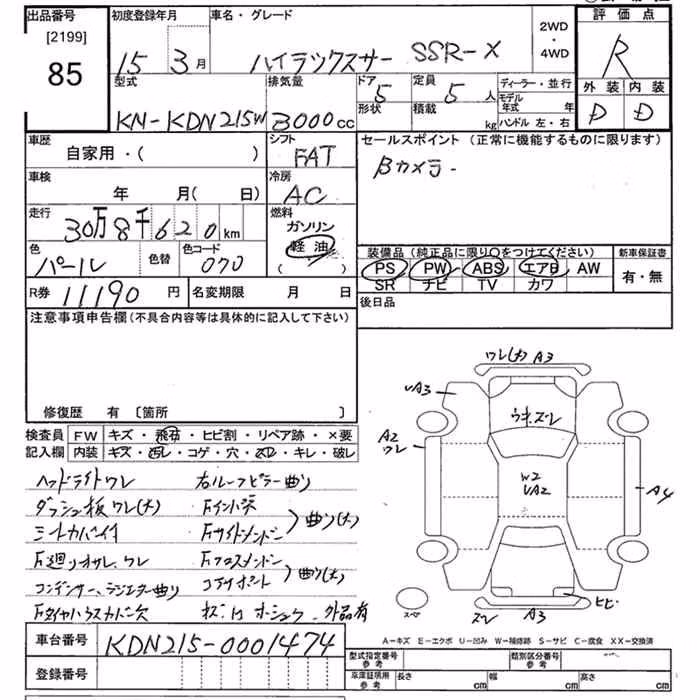 出品番号 初度登録年月 車名・グレード 2WD・4WD 評価点
[2199]
85
15 3月 ハイラックスサーフ SSR-X R
型式 排気量 ドア 定員 ディーラー・並行 外装 内装
KN-KDN215W 3000cc 5 5人 モデル年式 年 D D
形状 積載 kg ハンドル 左・右
車歴 シフト セールスポイント(正常に機能するものに限ります)
自家用・( ) FAT Bカメラ
車検 冷房
年 月( 日) AC
走行 燃料
30万8千620km ガソリン
軽油
色 色替 色コード ( ) 装備品(純正品に限り○をつけてください) 新車保証書
パール 070 PS PW ABS エアB AW 有・無
SR ナビ TV カワ
R券 11190円 名変期限 月 日 後日品
注意事項申告欄(不具合内容等は具体的に記入して下さい)
修復歴 有 〔箇所 〕
検査員 FW キズ・飛石・ヒビ割・リペア跡・×要
記入欄 内装 キズ・汚レ・コゲ・穴・スレ・キレ・破レ
ヘッドライトワレ 右ルーフピラー曲り
ダッシュ板ワレ(大)
シートカバー付 Fサイドメンバー 曲り(大)
F廻りオサレ、ワレ Fクロスメンバー
コンデンサー、ラジエター曲り コアサポート 曲り(大)
外品有
ワレ(大) A3
UA3
A2
ワレ
W2
UA2
A4
スペア
ズレ A3 ヒビ
A-キズ E-エクボ U-凹み W-補修跡 S-サビ C-腐食 XX-交換済
車台番号 KDN215-0001474
登録番号
型式指定番号 参考 類別区分番号 参考
車庫証明用 参考 長さ cm 幅 cm 高さ cm